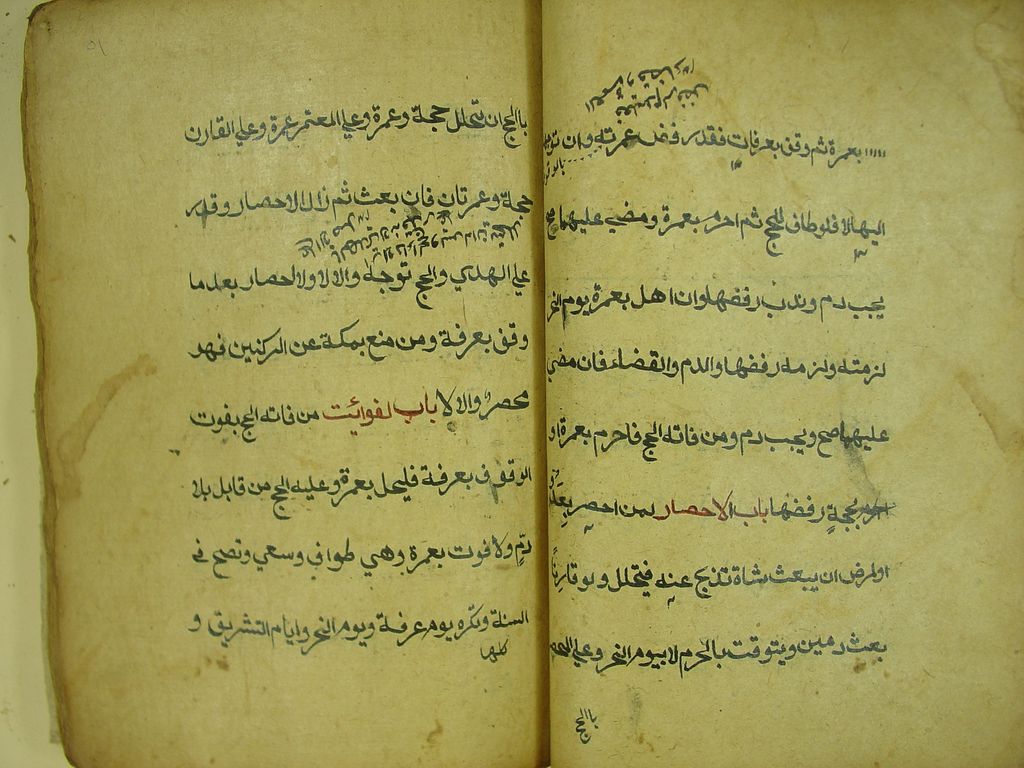 بعمرة ثم وقف بعرفات فقد رفض عمرته وان توجه
اليها لا فلو طاف للحج ثم احرم بعمرة ومضى عليهما صح
يجب دم وندب رفضها وان اهل بعمرة يوم النحر
لزمته ولزمه رفضها والدم والقضاء فان مضى
عليهما صح ويجب دم ومن فاته الحج فاحرم بعمرة او
بحجة رفضها باب الاحصار لمن احصر بعدو
او لمرض ان يبعث شاة تذبح عنه فيتحلل ولو قارنا
بعث دمين ويتوقت بالحرم لا بيوم النحر وعلى المحصر
بالحج
بالحج ان تحلل حجة وعمرة وعلى المعتمر عمرة وعلى القارن
حجة وعمرتان فان بعث ثم زال الاحصار وقدر
على الهدي والحج توجه والا لا ولا احصار بعد ما
وقف بعرفة ومن منع بمكة عن الركنين فهو
محصر والا لا باب الفوائت من فاته الحج بفوت
الوقوف بعرفة فليحل بعمرة وعليه الحج من قابل بلا
دم ولا فوت بعمرة وهي طواف وسعي وتصح في
السنة وتكره يوم عرفة ويوم النحر وايام التشريق و
كلها